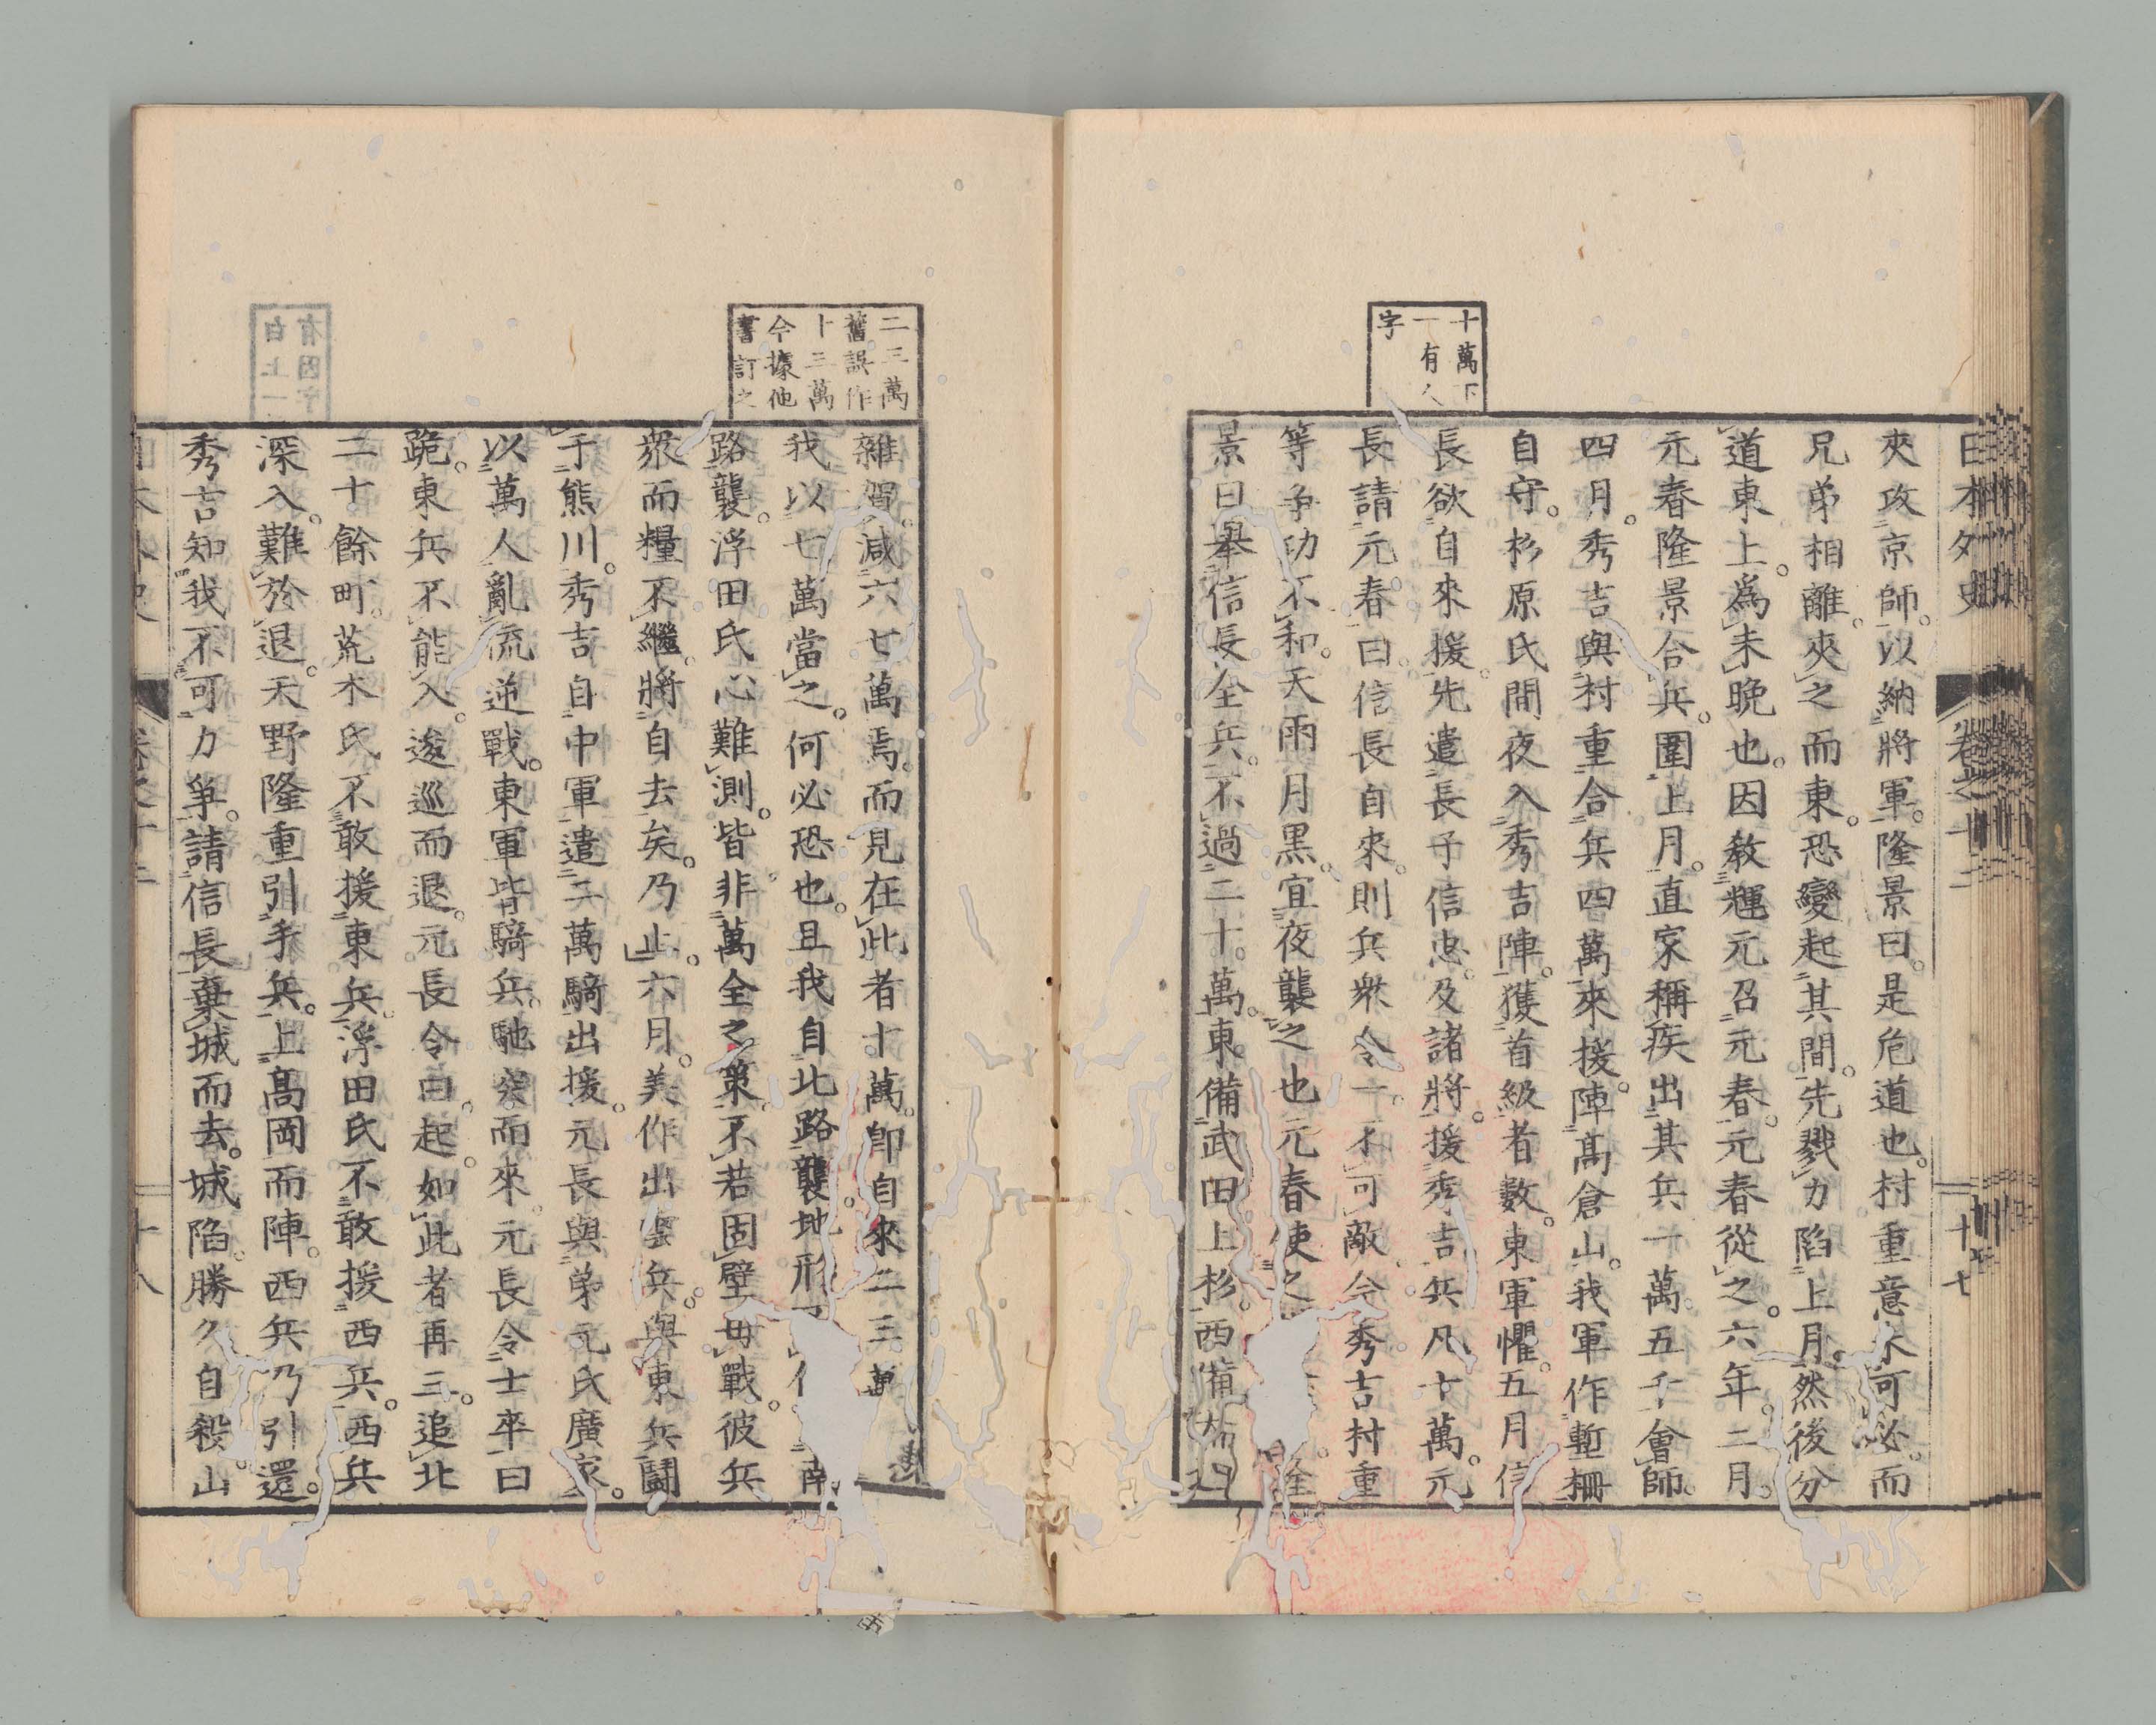 日本外史
卷之十二
十七
十萬下
一有人
字
夾攻京師。以納將軍。隆景曰。是危道也。村重意未可必。而
兄弟相離。夾之而東。恐變起其間。先戮力陷上月。然後分
道東上。爲未晚也。因教輝元召元春。元春從之。六年。二月。
元春隆景合兵。圍上月。直家稱疾出其兵一萬五千會師。
四月。秀吉與村重合兵四萬來援。陣高倉山。我軍作塹柵
自守。杉原氏間夜入秀吉陣。獲首級者數。東軍懼。五月信
長欲自來援。先遣長子信忠。及諸將。援秀吉兵凡十萬。元
長請元春。曰。信長自來。則兵衆令一。不可敵。今秀吉村重
等爭功不和。天雨月黑。宜夜襲之也元春使之隆
景曰擧信長全兵。不過二十萬。東備武田上杉。西備
二三萬
舊誤作
十三萬
今據他
書訂之
雜賀。減六七萬焉。而見在此者十萬。卽自來二三萬
我以七萬當之。何必恐也。且我自北路襲。地形南
路襲。浮田氏心難測。皆非萬全之策。不若固壁毋戰。彼兵
衆而糧不繼。將自去矣。乃止。六月。美作出雲兵。與東兵鬪
于熊川。秀吉自中軍遣二萬騎出援。元長與弟元氏廣家。
以萬人亂流逆戰。東軍皆騎兵。馳突而來。元長令士卒曰
跪。東兵不能入。逡巡而退。元長令曰。起。如此者再三。追北
二十餘町。荒木氏不敢援東兵。浮田氏不敢援西兵。西兵
深入。難於退。天野隆重引手兵。上高岡而陣。西兵乃引還。
秀吉知我不可力爭。請信長棄城而去。城陷。勝久自殺。山
日本外史
卷之十二
十八